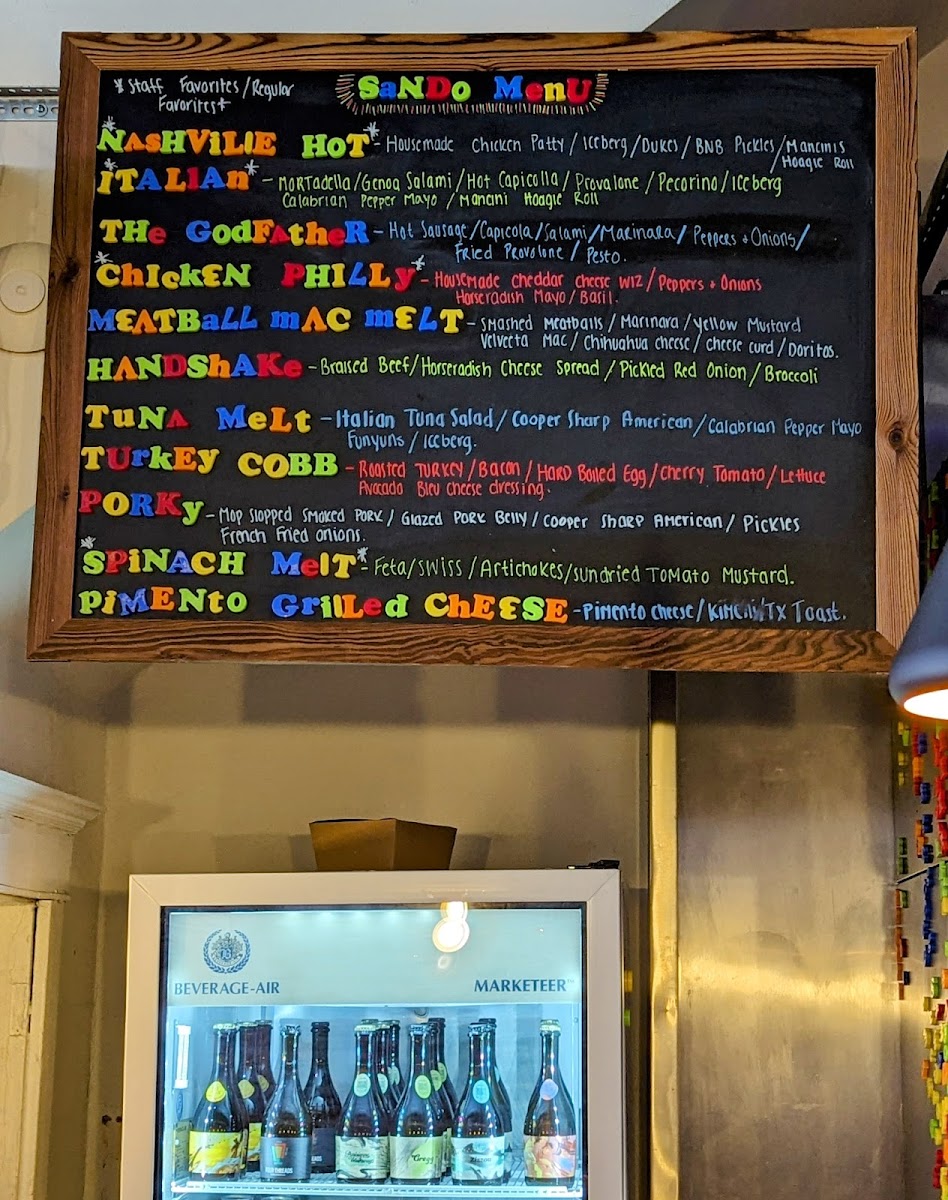 * Staff Favorites/Regular
Favorites *
SaNDo MenU
*NASHViLlE HOT* - Housemade Chicken Patty / Iceberg / Dukes / BNB Pickles / Mancinis
Hoagie Roll
*iTALIAn* - Mortadella/Genoa Salami/Hot Capicolla/Provalone/Pecorino/Iceberg
Calabrian Pepper Mayo / Mancini Hoagie Roll
THe GodFAtheR - Hot Sausage/Capicola/Salami/Marinara/Peppers + Onions/
Fried Provolone / Pesto.
*ChIcKEN PHILLy* - Housemade cheddar cheese wiz / Peppers + Onions
Horseradish Mayo / Basil.
MEATBaLL mAC mELT - Smashed Meatballs / Marinara / Yellow Mustard
Velveeta Mac / Chihuahua cheese / cheese curd / Doritos.
HANDShAKe - Braised Beef/Horseradish Cheese Spread / Pickled Red Onion / Broccoli
TuNA MeLt - Italian Tuna Salad / Cooper Sharp American / Calabrian Pepper Mayo
Funyuns / Iceberg.
TUrkEy COBB - Roasted Turkey / Bacon / Hard Boiled Egg / Cherry Tomato / Lettuce
Avocado Bleu cheese dressing.
PORKy - Mop Slopped Smoked Pork / Glazed Pork Belly / Cooper Sharp American / Pickles
French Fried onions.
*SPiNACH MelT* - Feta/Swiss / Artichokes/Sundried Tomato Mustard.
PiMENtO GrilLed ChEESE - Pimento cheese / Kimchi/Tx Toast.
BEVERAGE-AIR MARKETEER
Gregg